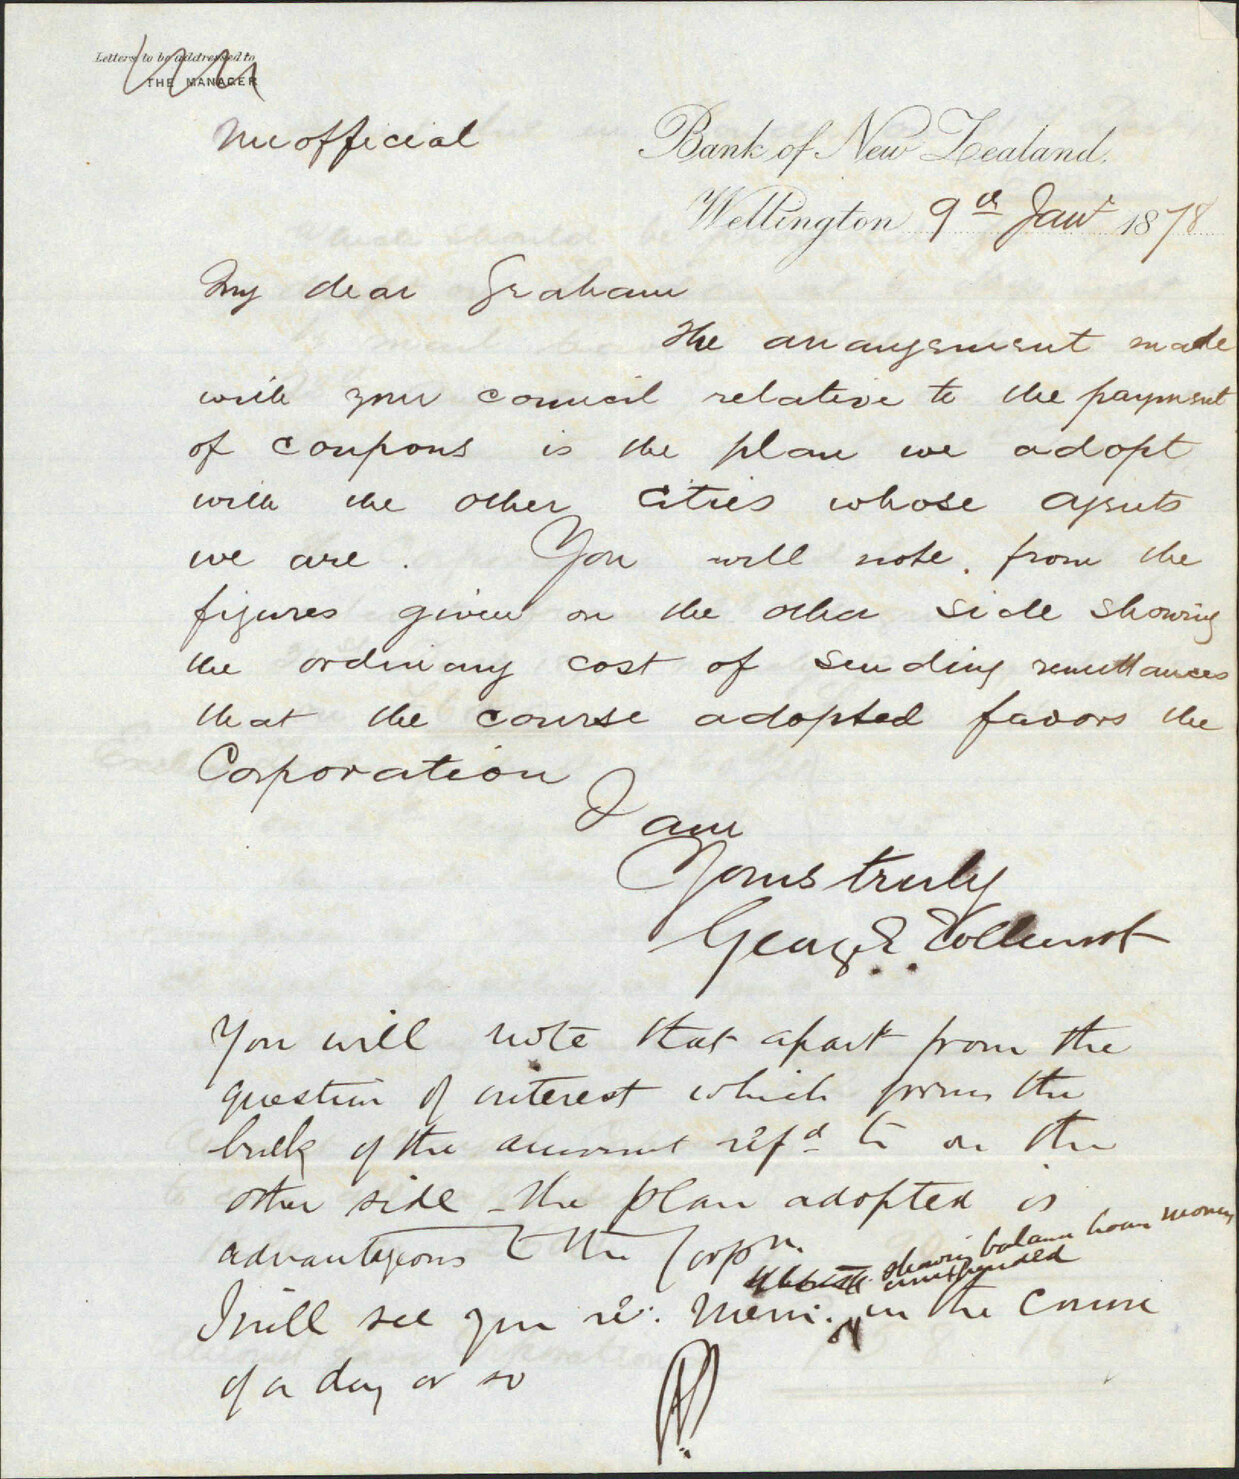 Letters to be addressed to
THE MANAGER
Unofficial
Bank of New Zealand.
Wellington 9th Jany 1878
My dear Graham
The arrangement made
with your council relative to the payment
of coupons is the plan we adopt
with the other cities whose agents
we are. You will note. from the
figures given on the other side showing
the ordinary cost of sending remittances
that the course adopted favors the
Corporation
I am
Yours truly
George E Tolhurst
You will note that apart from the
question of interest which forms the
bulk of the amount refd to on the
other side – the plan adopted is
advantageous to the Corpn.
showing balance loan money
unexpended
I will see you re. Mem. in the course
of a day or so